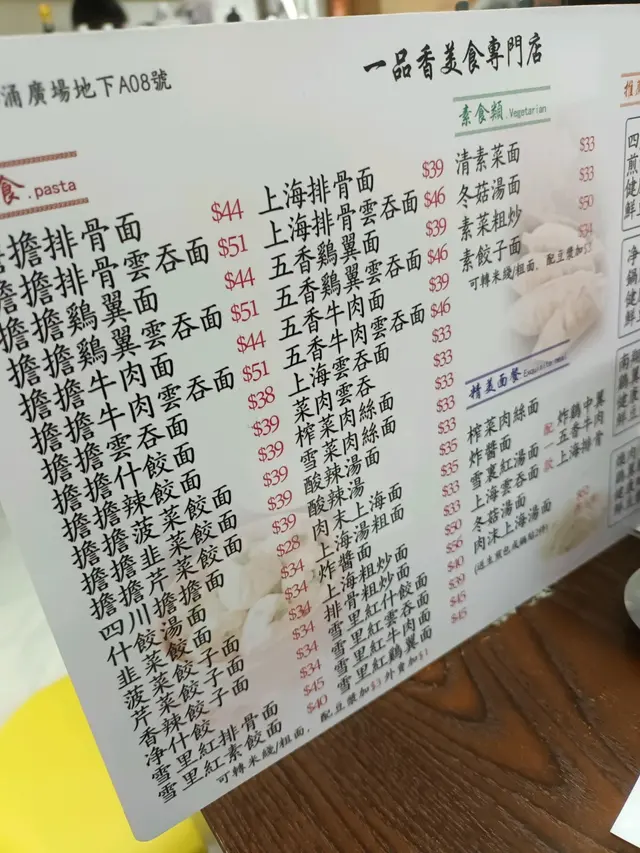 涌廣場地下A08號
一品香美食專門店
食.pasta
擔擔排骨面 $44
擔擔排骨雲吞面 $51
擔擔鷄翼面 $44
擔擔鷄翼雲吞面 $51
擔擔牛肉面 $44
擔擔牛肉雲吞面 $51
擔擔雲吞面 $38
擔擔什餃面 $39
擔擔辣餃面 $39
擔擔菠菜餃面 $39
擔擔韭菜餃面 $39
擔擔芹菜餃面 $39
四川擔擔面 $28
什餃湯面 $34
韭菜餃子面 $34
菠菜餃子面 $34
芹菜餃子面 $34
香辣餃子面 $34
净什餃 $34
雪里紅排骨面 $45
雪里紅素餃面 $40
可轉米綫/粗面，配豆漿加$3外賣加$1
上海排骨面 $39
上海排骨雲吞面 $46
五香鷄翼面 $39
五香鷄翼雲吞面 $46
五香牛肉面 $39
五香牛肉雲吞面 $46
上海雲吞面 $33
菜肉雲吞 $33
榨菜肉絲面 $33
雪菜肉絲面 $33
酸辣湯面 $35
酸辣湯 $35
肉末上海面 $33
上海湯粗面 $33
炸醬面 $33
上海粗炒面 $50
排骨粗炒面 $56
雪里紅什餃面 $40
雪里紅雲吞面 $39
雪里紅牛肉面 $45
雪里紅鷄翼面 $45
素食類.Vegetarian
清素菜面 $33
冬菇湯面 $33
素菜粗炒 $50
素餃子面 $34
可轉米綫/粗面，配豆漿加$3
精美面餐 Exquisite meal
榨菜肉絲面
炸醬面
雪裏紅湯面
上海雲吞面
冬菇湯面
肉沫上海湯面
配 炸鷄中翼
一 五香牛肉
款 上海排骨
推